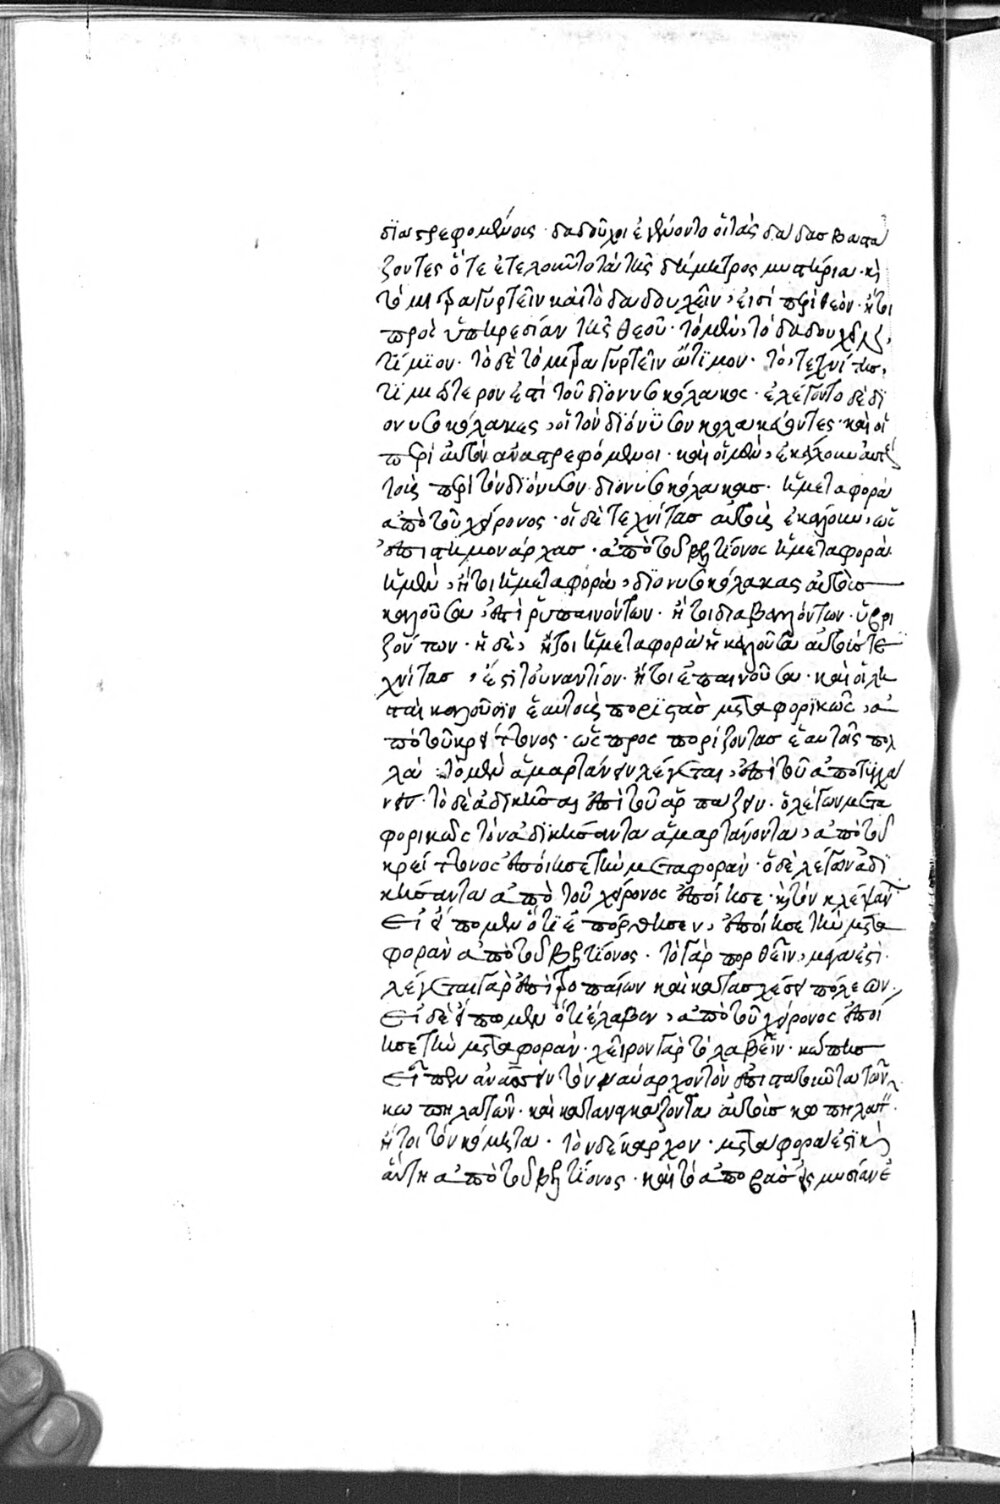 διατρεφομένοις · δαδοῦχοι ἐγένοντο οἱ τὰς δαδας βαστα
ζοντες ὅτε ἐτελοῦντο τὰ τῆς δήμητρος μυστήρια · καὶ
τὸ μητραγυρτεῖν καὶ τὸ δαδουχεῖν, εἰσὶ περὶ θεὸν · ἤτοι
πρὸς ὑπηρεσίαν τῆς θεοῦ · τὸ μὲν, τὸ δαδουχεῖν,
τίμιον · τὸ δὲ τὸ μητραγυρτεῖν ἄτιμον · τὸ, τεχνίτης,
τιμιώτερον ἐστὶ τοῦ διονυσοκόλακος · ἐλέγοντο δὲ δι
ονυσοκόλακες, οἱ τὸν διόνυσον κολακεύοντες · καὶ οἱ
περὶ αὐτὸν ἀνατρεφόμενοι · καὶ οἱ μὲν, ἐκάλουν αὐτοὺς
τοὺς περὶ τὸν διόνυσον διονυσοκόλακας · ἡ μεταφορὰ
ἀπὸ τοῦ χείρονος · οἱ δὲ τεχνίτας αὐτοὺς ἐκάλουν, ὡς
ἐπιστήμονάρχας · ἀπὸ τοῦ βελτίονος ἡ μεταφορὰ
ἡ μὲν, ἤτοι ἡ μεταφορὰ, διονυσοκόλακας αὐτοὺς
καλοῦσα, ἐπὶ ῥυπαινόντων · ἤτοι διαβαλλόντων · ὑβρι
ζόντων · ἡ δὲ, ἤτοι ἡ μεταφορὰ ἡ καλοῦσα αὐτοὺς τε
χνίτας, ἐστὶ τοὐναντίον · ἤτοι ἐπαινοῦσα · καὶ οἱ λη
σταὶ καλοῦσιν ἑαυτοὺς ποριστὰς μεταφορικῶς, ἀ
πὸ τοῦ κρείττονος · ὡς προς πορίζοντας ἑαυτοῖς πολ
λά · τὸ μὲν ἁμαρτάνειν λέγεται, ἐπὶ τοῦ ἀποτυγχά
νειν · τὸ δὲ ἀδικῆσαι ἐπὶ τοῦ ἁρπαζειν · ὁ λέγων μετα
φορικῶς τὸν ἀδικήσαντα ἁμαρτάνοντα, ἀπὸ τοῦ
κρείττονος ἐποίησε τὴν μεταφοράν · ὁ δὲ λέγων ἀδι
κήσαντα ἀπὸ τοῦ χείρονος ἐποίησε · καὶ τὸν κλέψαντα
εἰ εἴπομεν ὅτι ἐπόρθησεν, ἐποίησε τὴν μετα
φορὰν ἀπὸ τοῦ βελτίονος · τὸ γὰρ πορθεῖν, μεῖζόν ἐστι ·
λέγεται γὰρ ἐπὶ τροπαίων καὶ κατασχέσει πόλεων,
εἰ δὲ εἴπομεν ὅτι ἔλαβεν, ἀπὸ τοῦ χείρονος ἐποί
ησε τὴν μεταφοράν · χεῖρον γὰρ τὸ λαβεῖν · κώπης
εἶπεν ἀνάσσειν τὸν ναύαρχον τὸν ἐπιστατοῦντα τῶν
κωπηλατῶν · καὶ καταναγκάζοντα αὐτοὺς κωπηλατεῖν ·
ἤτοι τὸν κόμητα · τὸν δέκαρχον · μεταφορά ἐστι καὶ
αὕτη ἀπὸ τοῦ βελτίονος · καὶ τὸ ἀποβὰς εἰς μυσίαν ἐ